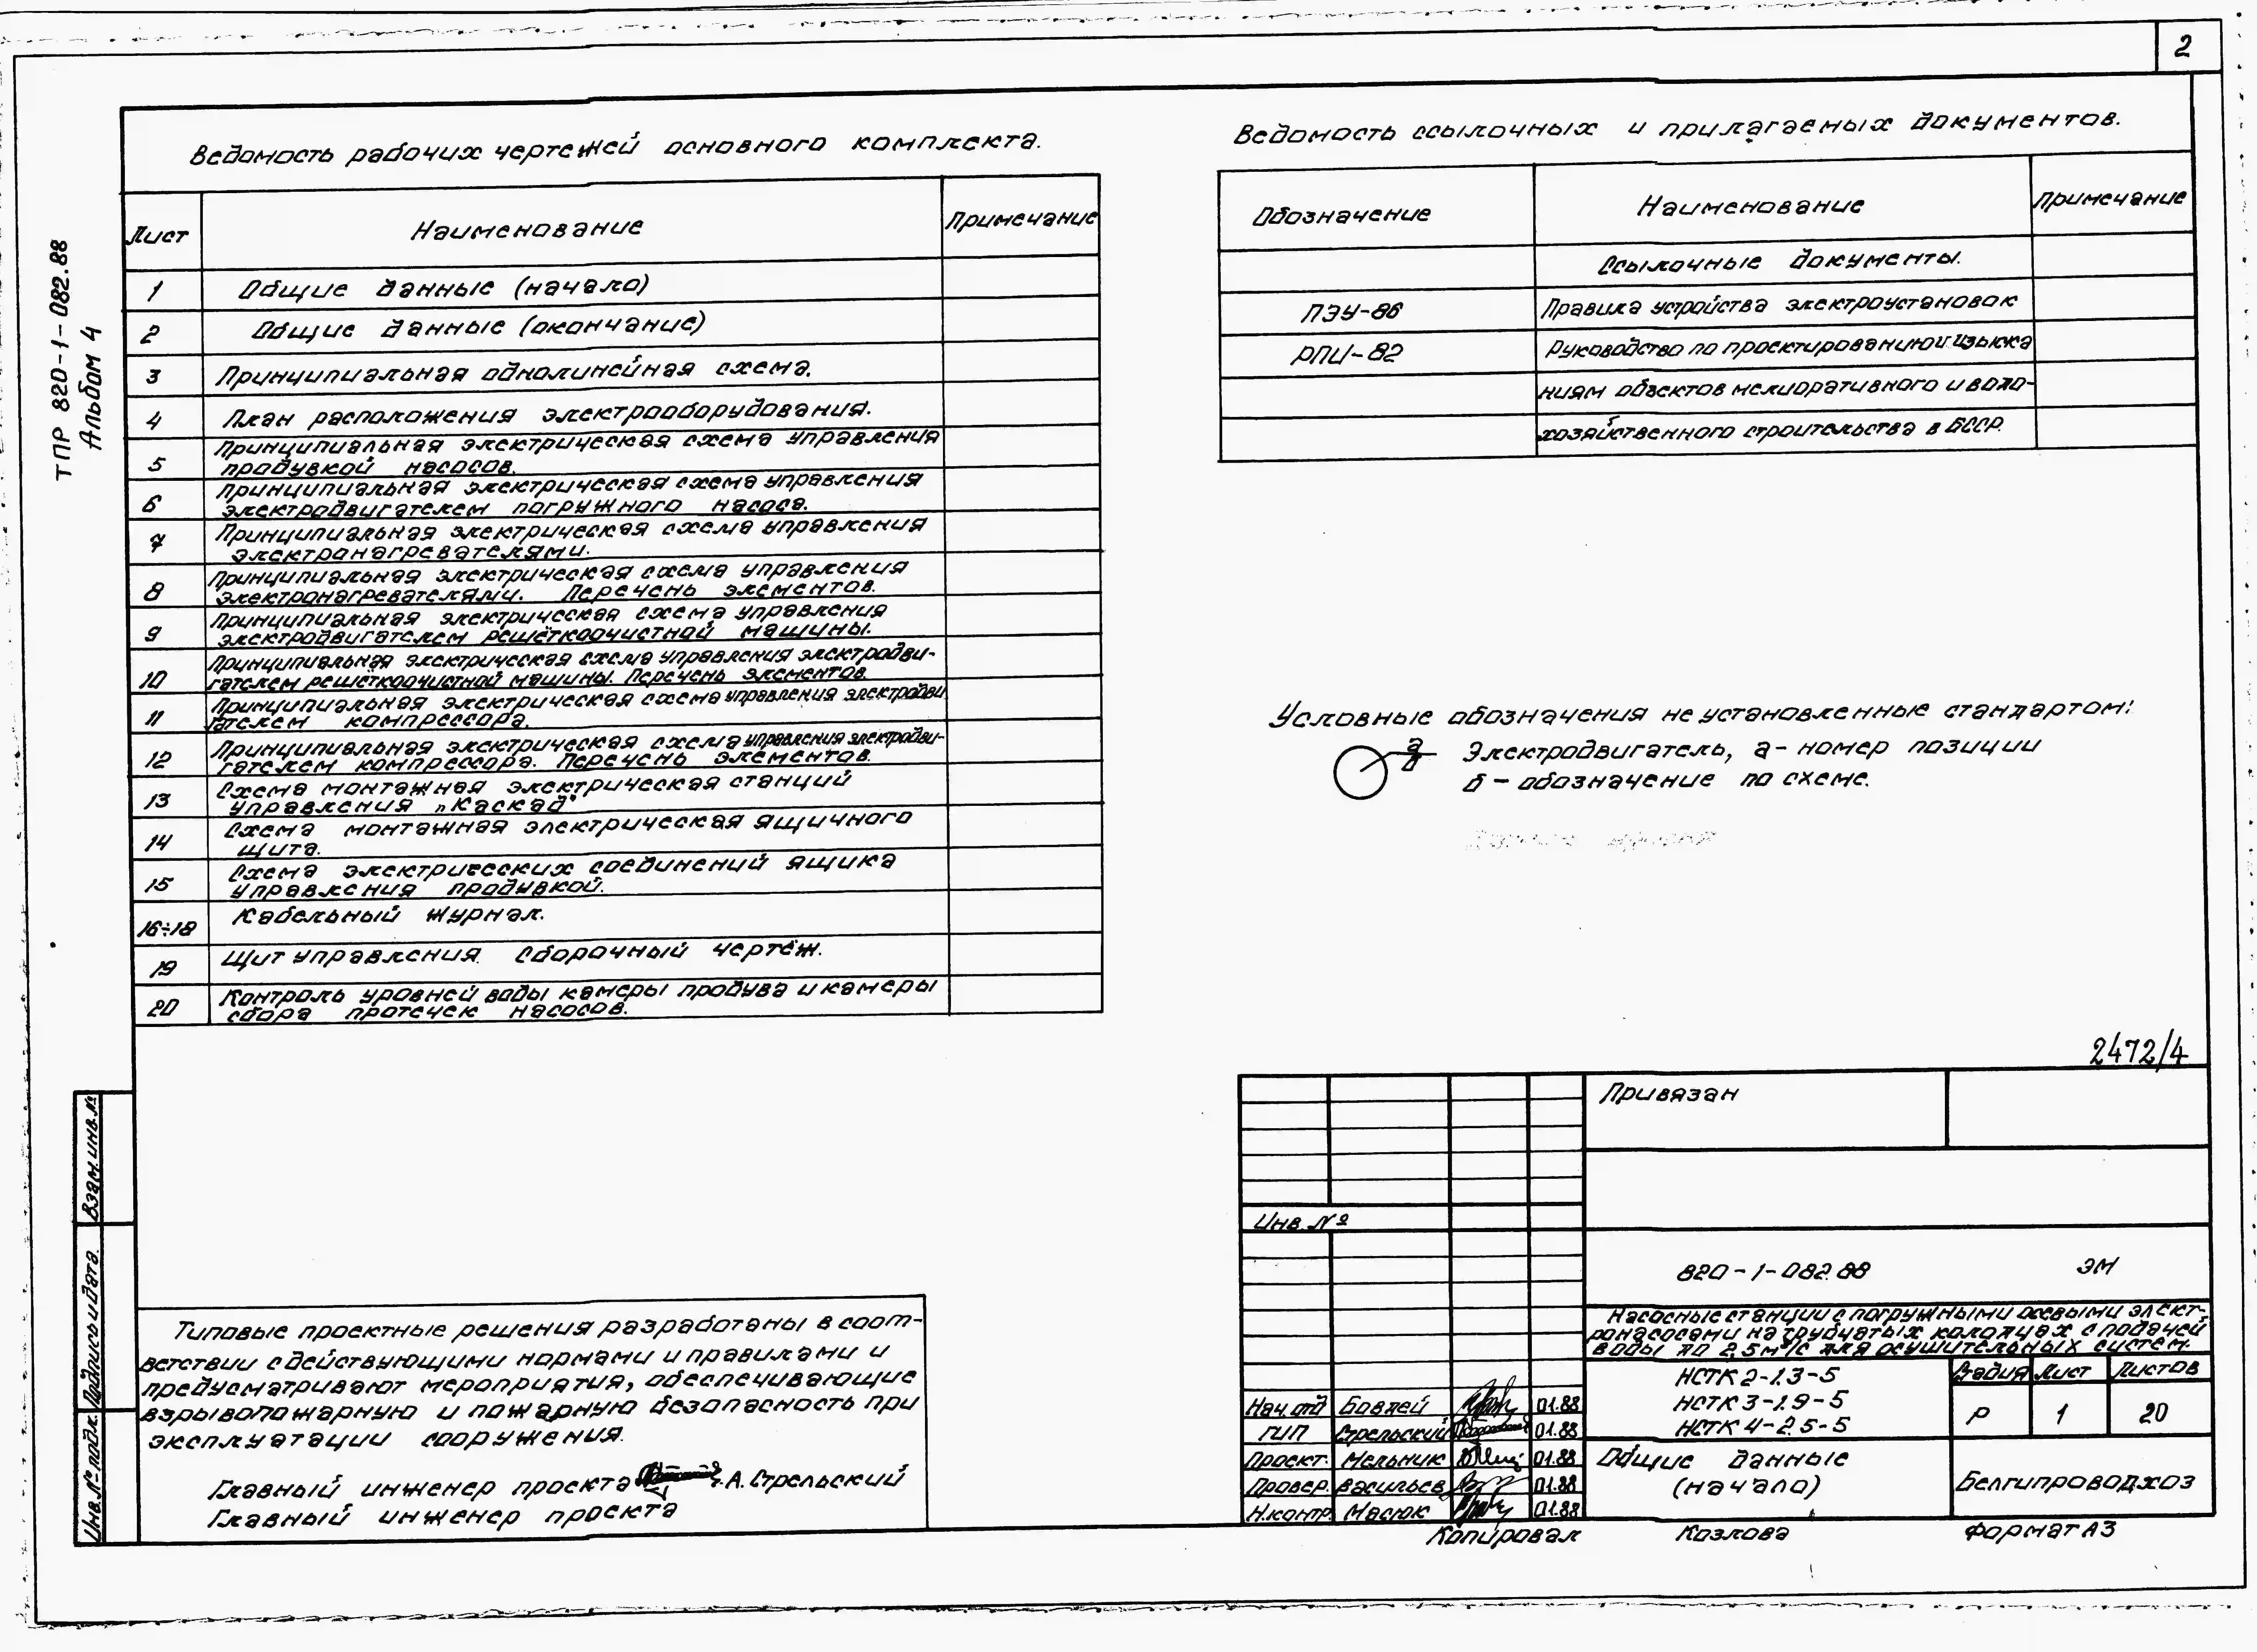 2
ТПР 820-1-082.88
Альбом 4
Ведомость рабочих чертежей основного комплекта.
Лист Наименование Примечание
1 Общие данные (начало)
2 Общие данные (окончание)
3 Принципиальная однолинейная схема.
4 План расположения электрооборудования.
5 Принципиальная электрическая схема управления
продувкой насосов.
6 Принципиальная электрическая схема управления
электродвигателем погружного насоса.
7 Принципиальная электрическая схема управления
электронагревателями.
8 Принципиальная электрическая схема управления
электронагревателями. Перечень элементов.
9 Принципиальная электрическая схема управления
электродвигателем решёткоочистной машины.
10 Принципиальная электрическая схема управления электродви-
гателем решёткоочистной машины. Перечень элементов.
11 Принципиальная электрическая схема управления электродви
гателем компрессора.
12 Принципиальная электрическая схема управления электродви-
гателем компрессора. Перечень элементов.
13 Схема монтажная электрическая станций
управления „Каскад"
14 Схема монтажная электрическая ящичного
щита.
15 Схема электрических соединений ящика
управления продувкой.
16÷18 Кабельный журнал.
19 Щит управления. Сборочный чертёж.
20 Контроль уровней воды камеры продува и камеры
сбора протечек насосов.
Ведомость ссылочных и прилагаемых документов.
Обозначение Наименование Примечание
Ссылочные документы.
ПЭУ-86 Правила устройства электроустановок
РПИ-82 Руководство по проектированию и изыска
ниям объектов мелиоративного и водо-
хозяйственного строительства в БССР.
Условные обозначения не установленные стандартом:
а Электродвигатель, а- номер позиции
б б - обозначение по схеме.
2472/4
Взам. инв. №
Подпись и дата.
Инв. № подл.
Типовые проектные решения разработаны в соот-
ветствии с действующими нормами и правилами и
предусматривают мероприятия, обеспечивающие
взрывопожарную и пожарную безопасность при
эксплуатации сооружения.
Главный инженер проекта А. Стрельский
Главный инженер проекта
Привязан
Инв. №
820-1-082.88 ЭМ
Насосные станции с погружными осевыми элект-
ронасосами на трубчатых колодцах с подачей
воды до 2,5 м³/с для осушительных систем.
НСТК 2-1.3-5
НСТК 3-1.9-5
НСТК 4-2.5-5
Стадия Лист Листов
Р 1 20
Нач. отд Бовлей 01.88
ГИП Стрельский 01.88
Проект. Мельник 01.88
Провер. Васильев 01.88
Н.контр. Масюк 01.88
Общие данные
(начало)
Белгипроводхоз
Копировал Козлова Формат А3